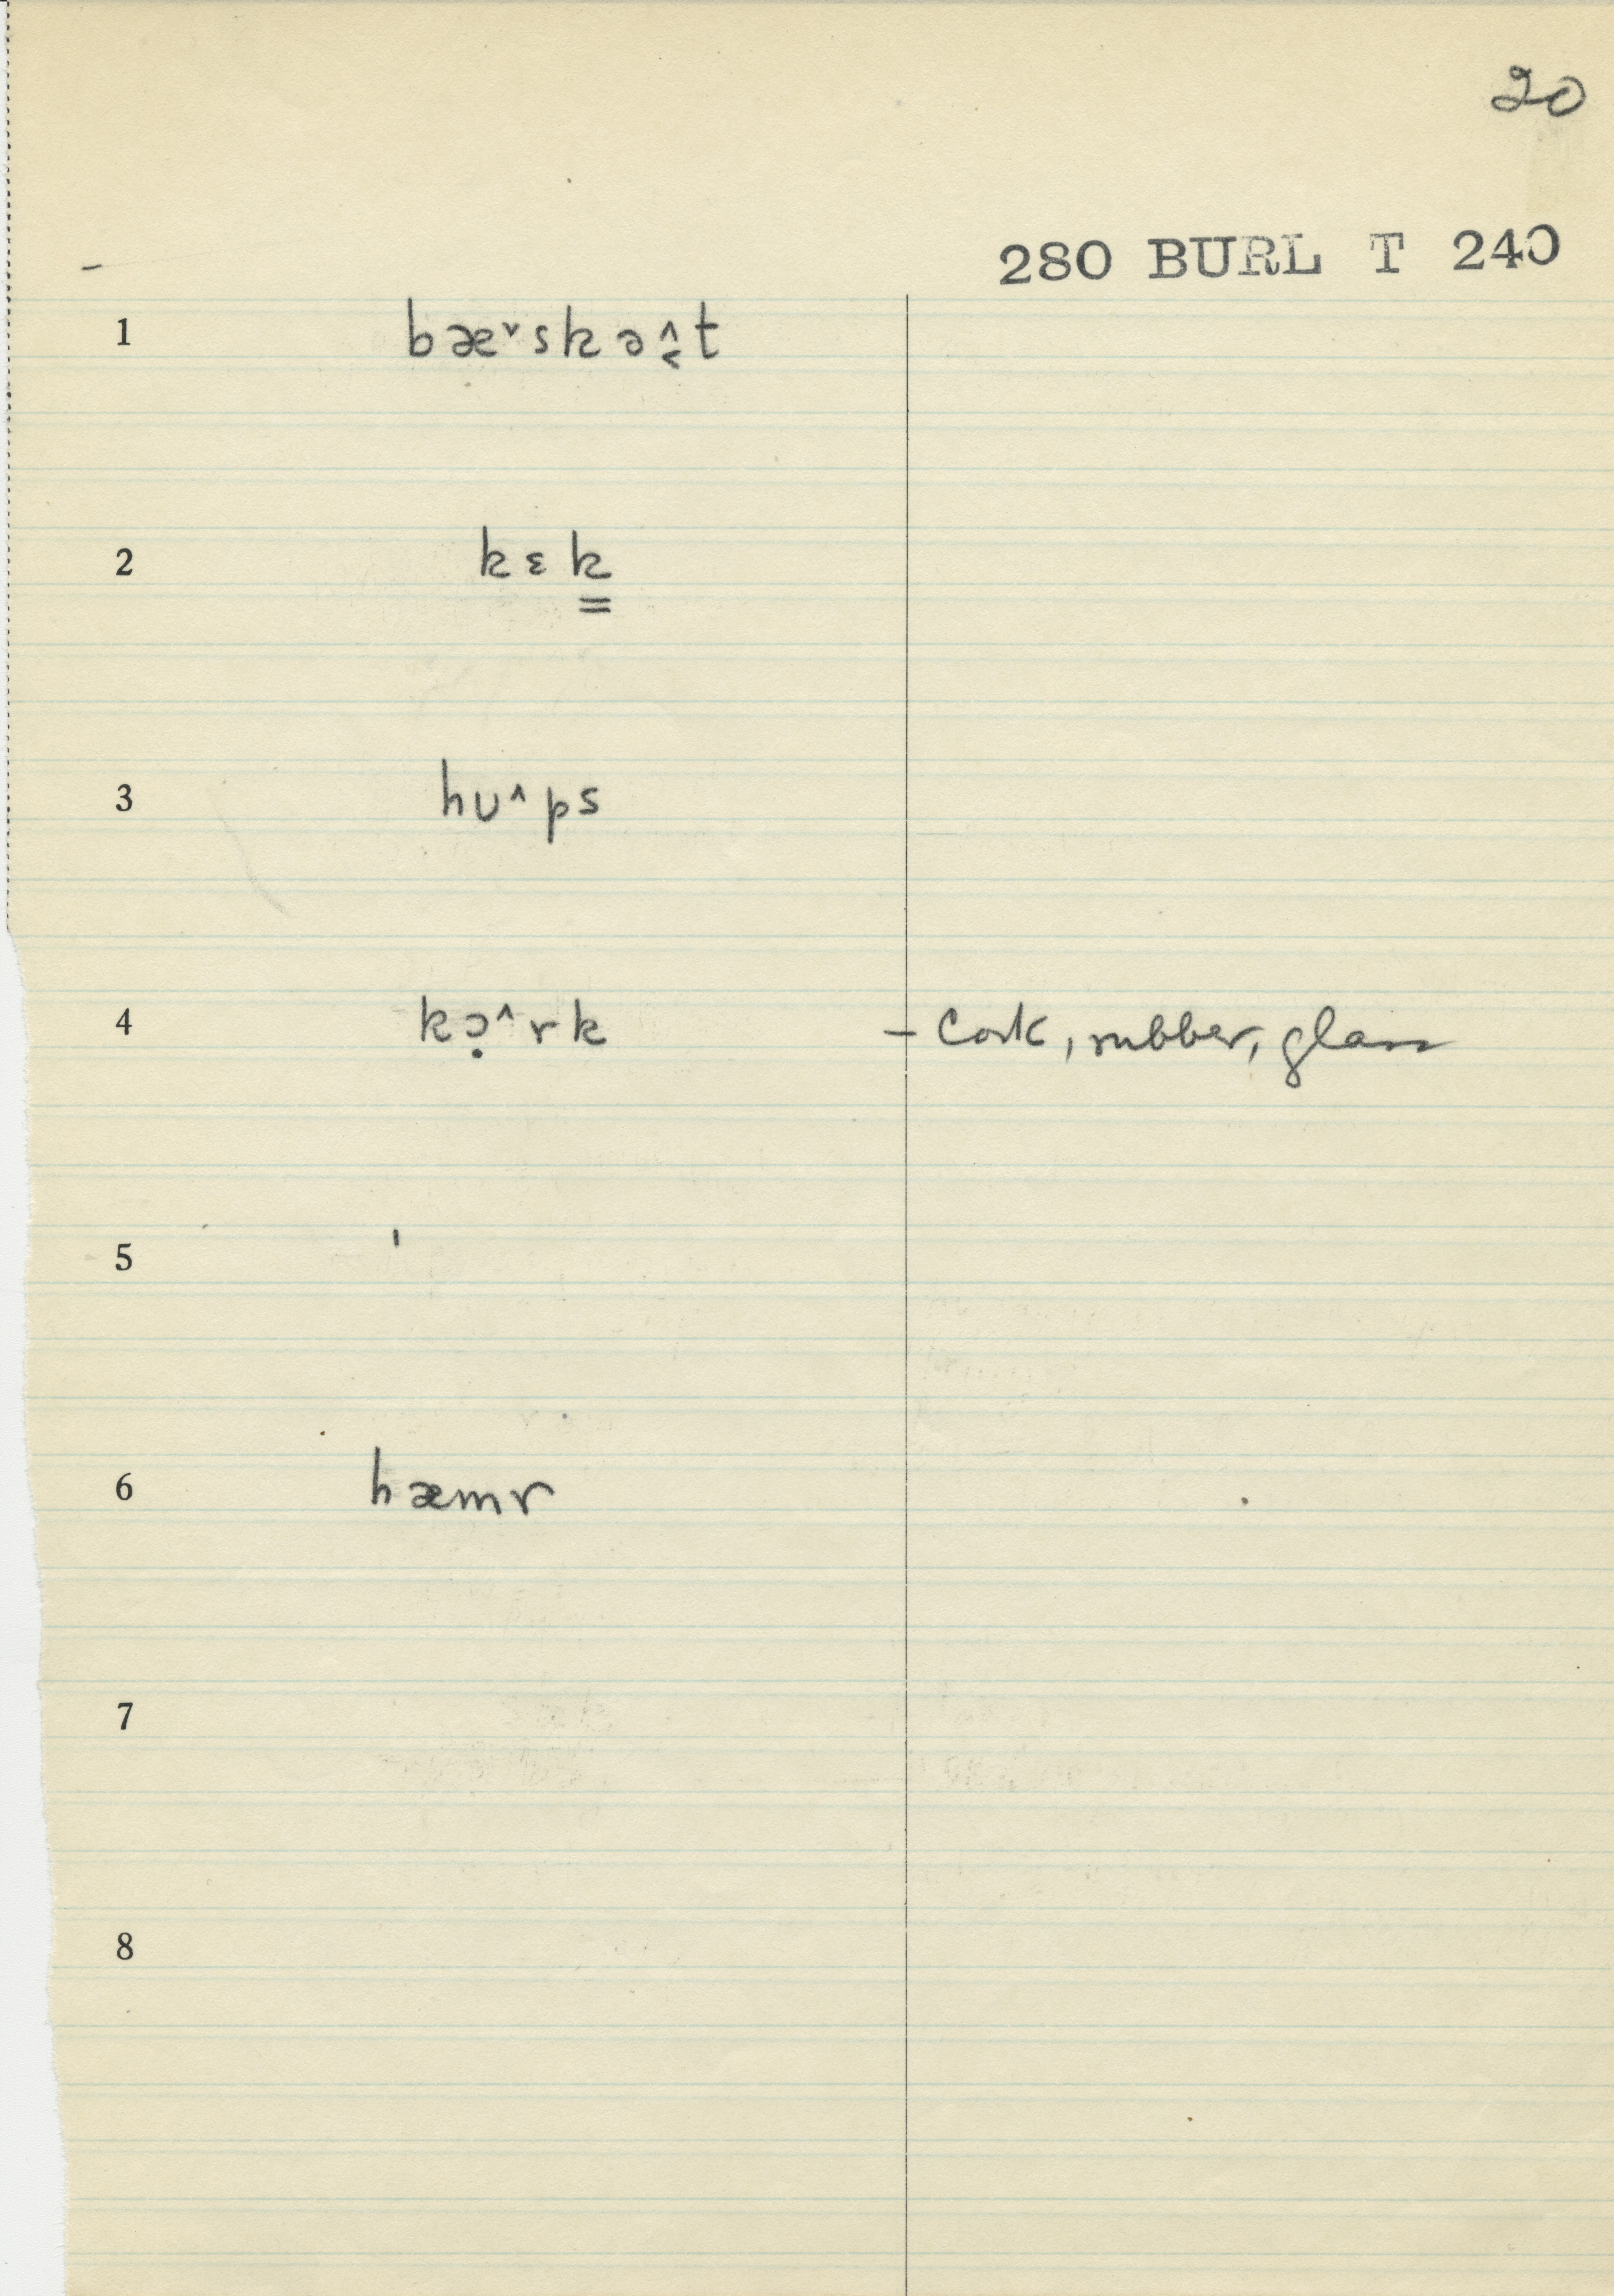 20
280 BURL T 240
1 bæ˅skə^̬t
2 kɛk̳
3 hʊ^ps
4 kɔ̣^rk – Cork, rubber, glass
5 '
6 hæmr
7
8